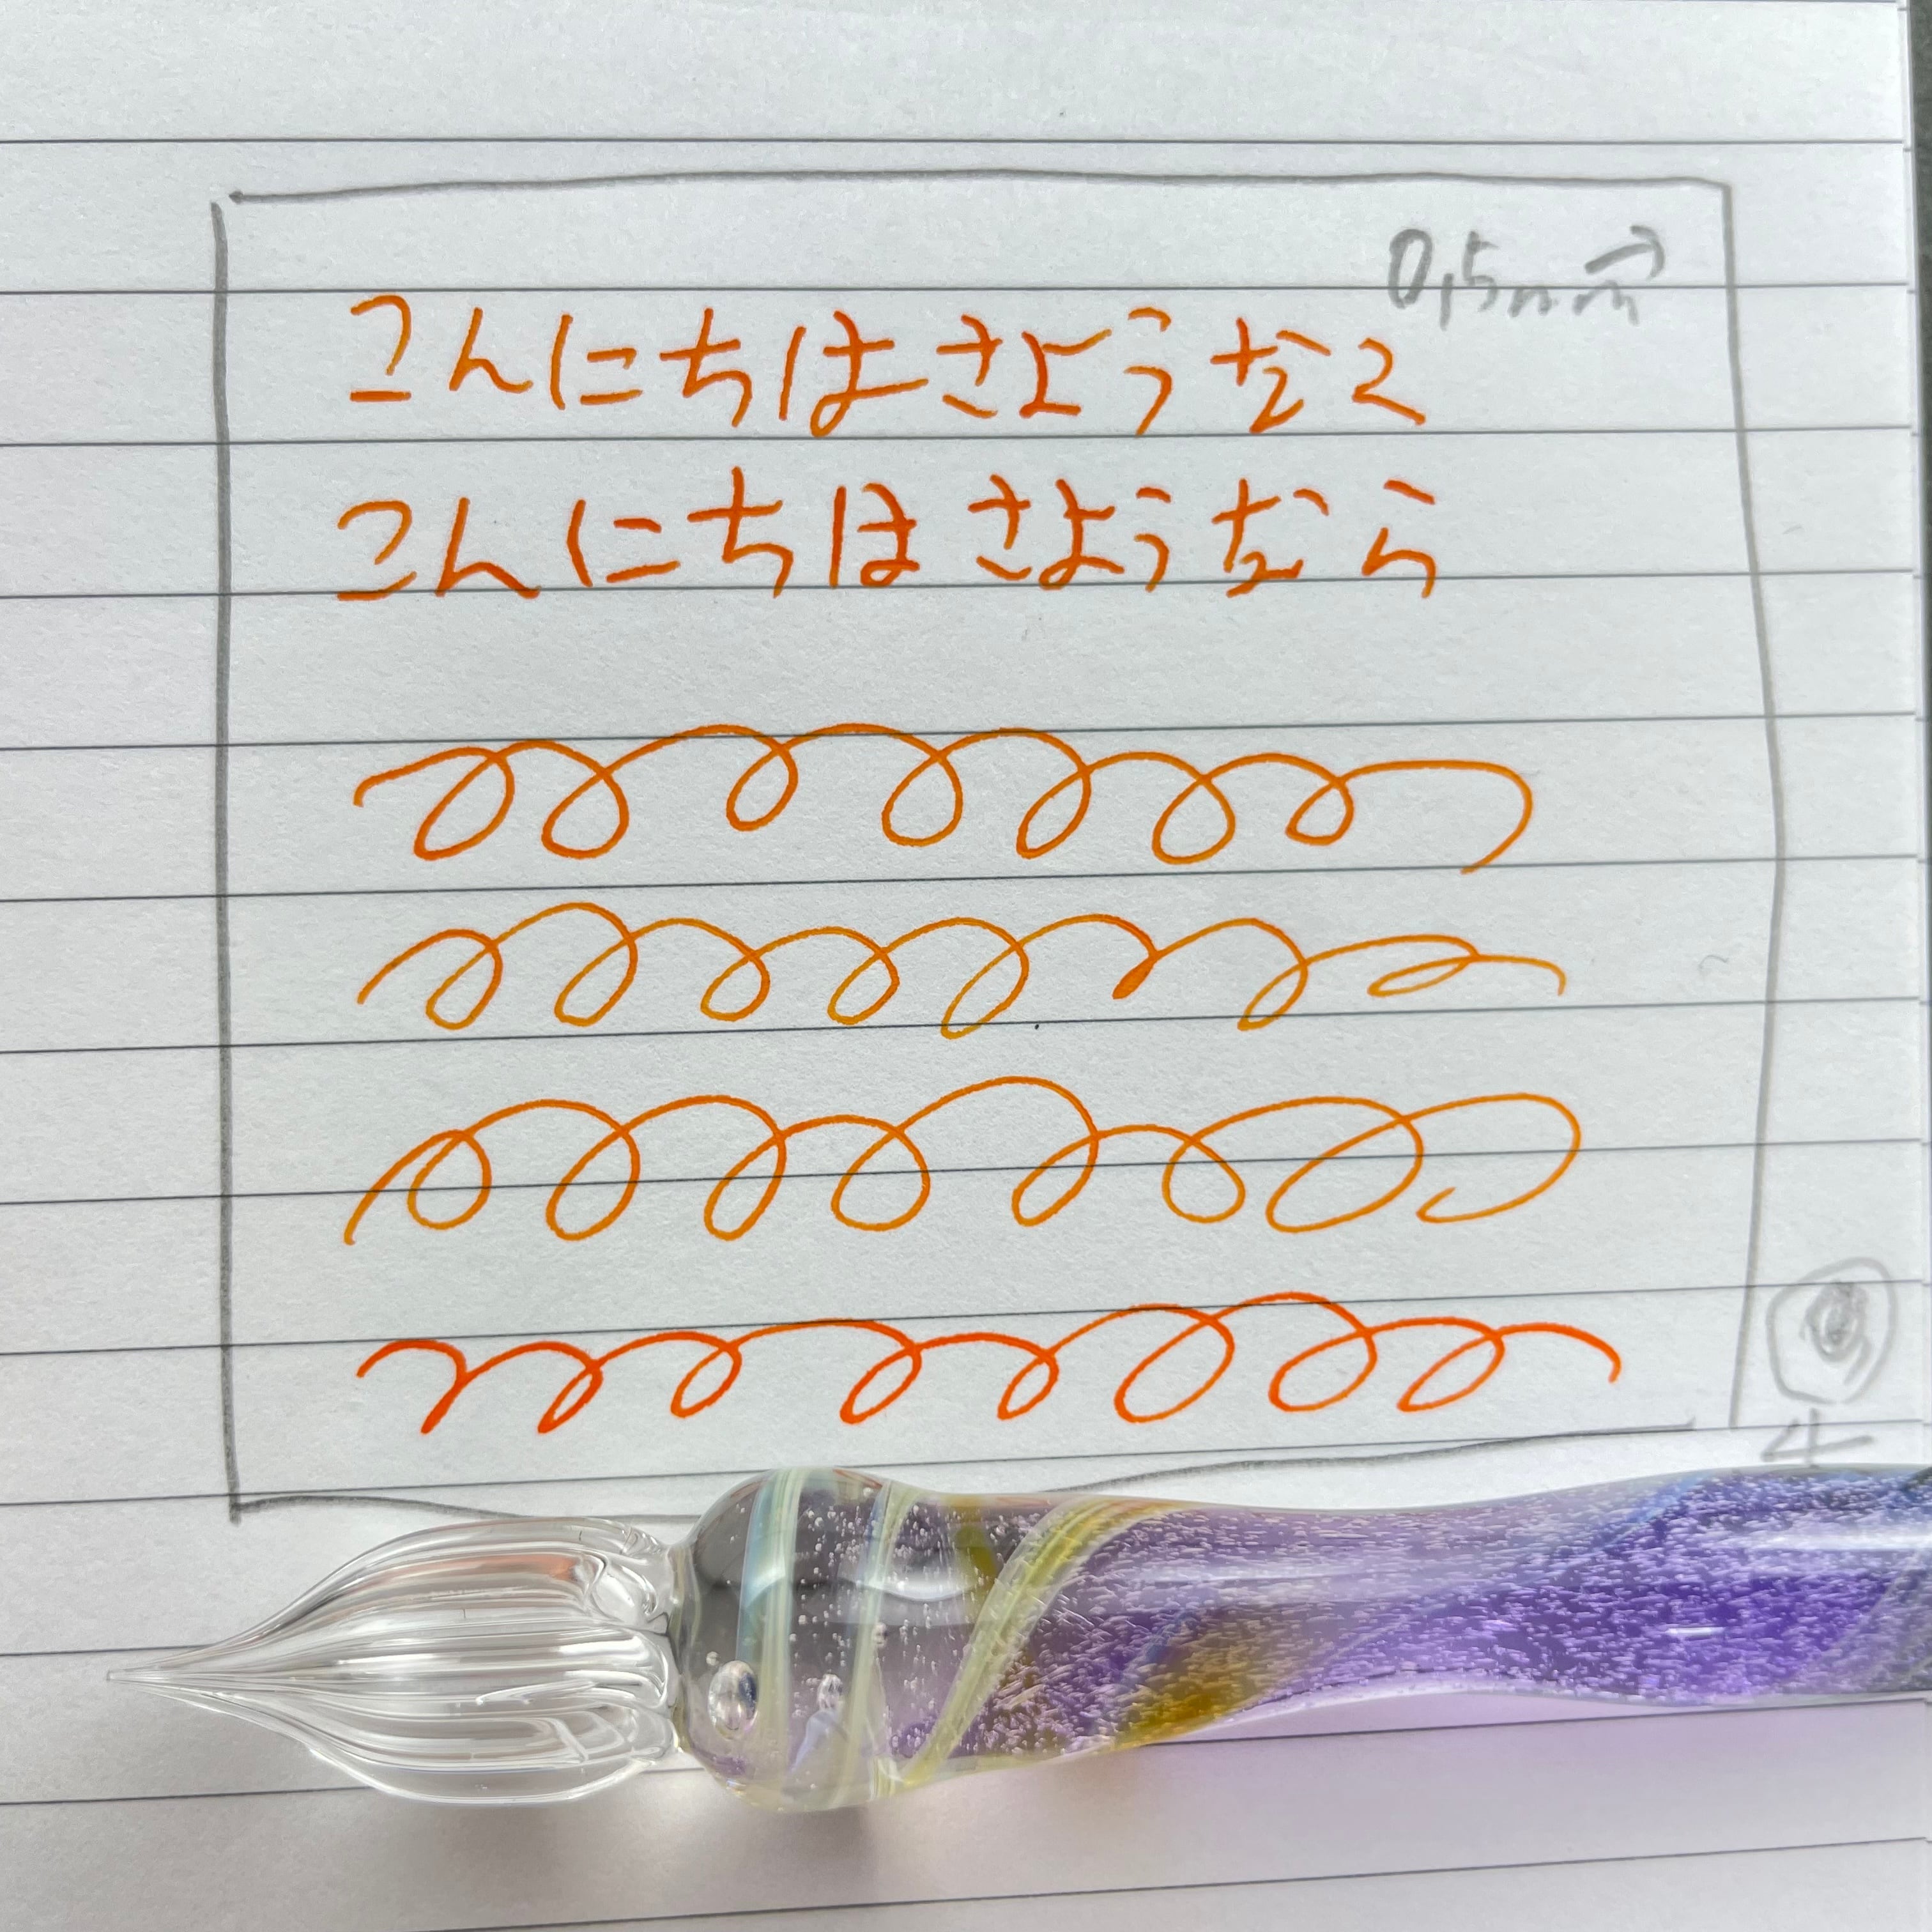 0.5mm
こんにちはさようなく
こんにちはさようなら
4